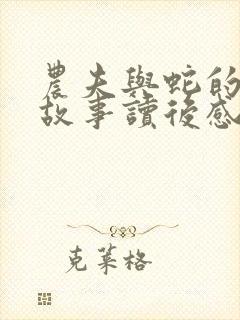 農夫與蛇的
故事讀後感
克萊格